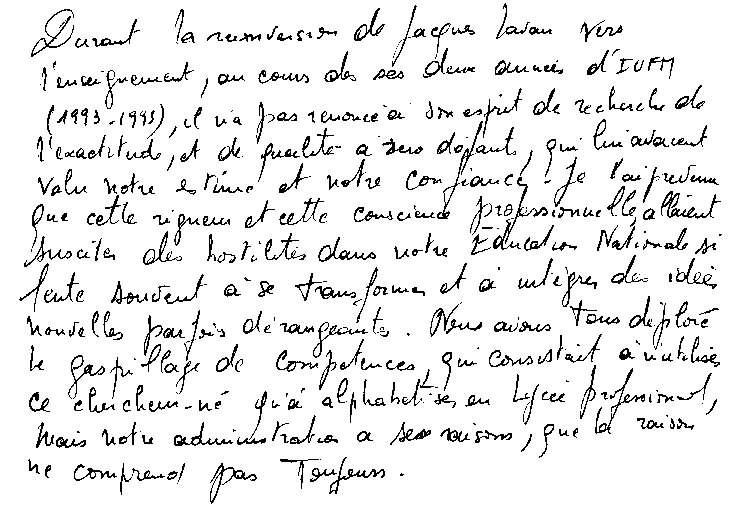 Durant la reconversion de Jacques Lavau vers
l'enseignement, au cours des ses deux années d'IUFM
(1993-1995), il n'a pas renoncé à son esprit de recherche de
l'exactitude, et de qualité à zéro défauts, qui lui avaient
valu notre estime et notre confiance. Je l'ai prévenu
que cette rigueur et cette conscience professionnelle allaient
susciter des hostilités dans notre Éducation Nationale si
lente souvent à se transformer et à intégrer des idées
nouvelles parfois dérangeantes. Nous avons tous déploré
le gaspillage de compétences, qui consistait à n'utiliser
ce chercheur-né qu'à alphabétiser en Lycée professionnel,
mais notre administration a ses raisons, que la raison
ne comprend pas toujours.